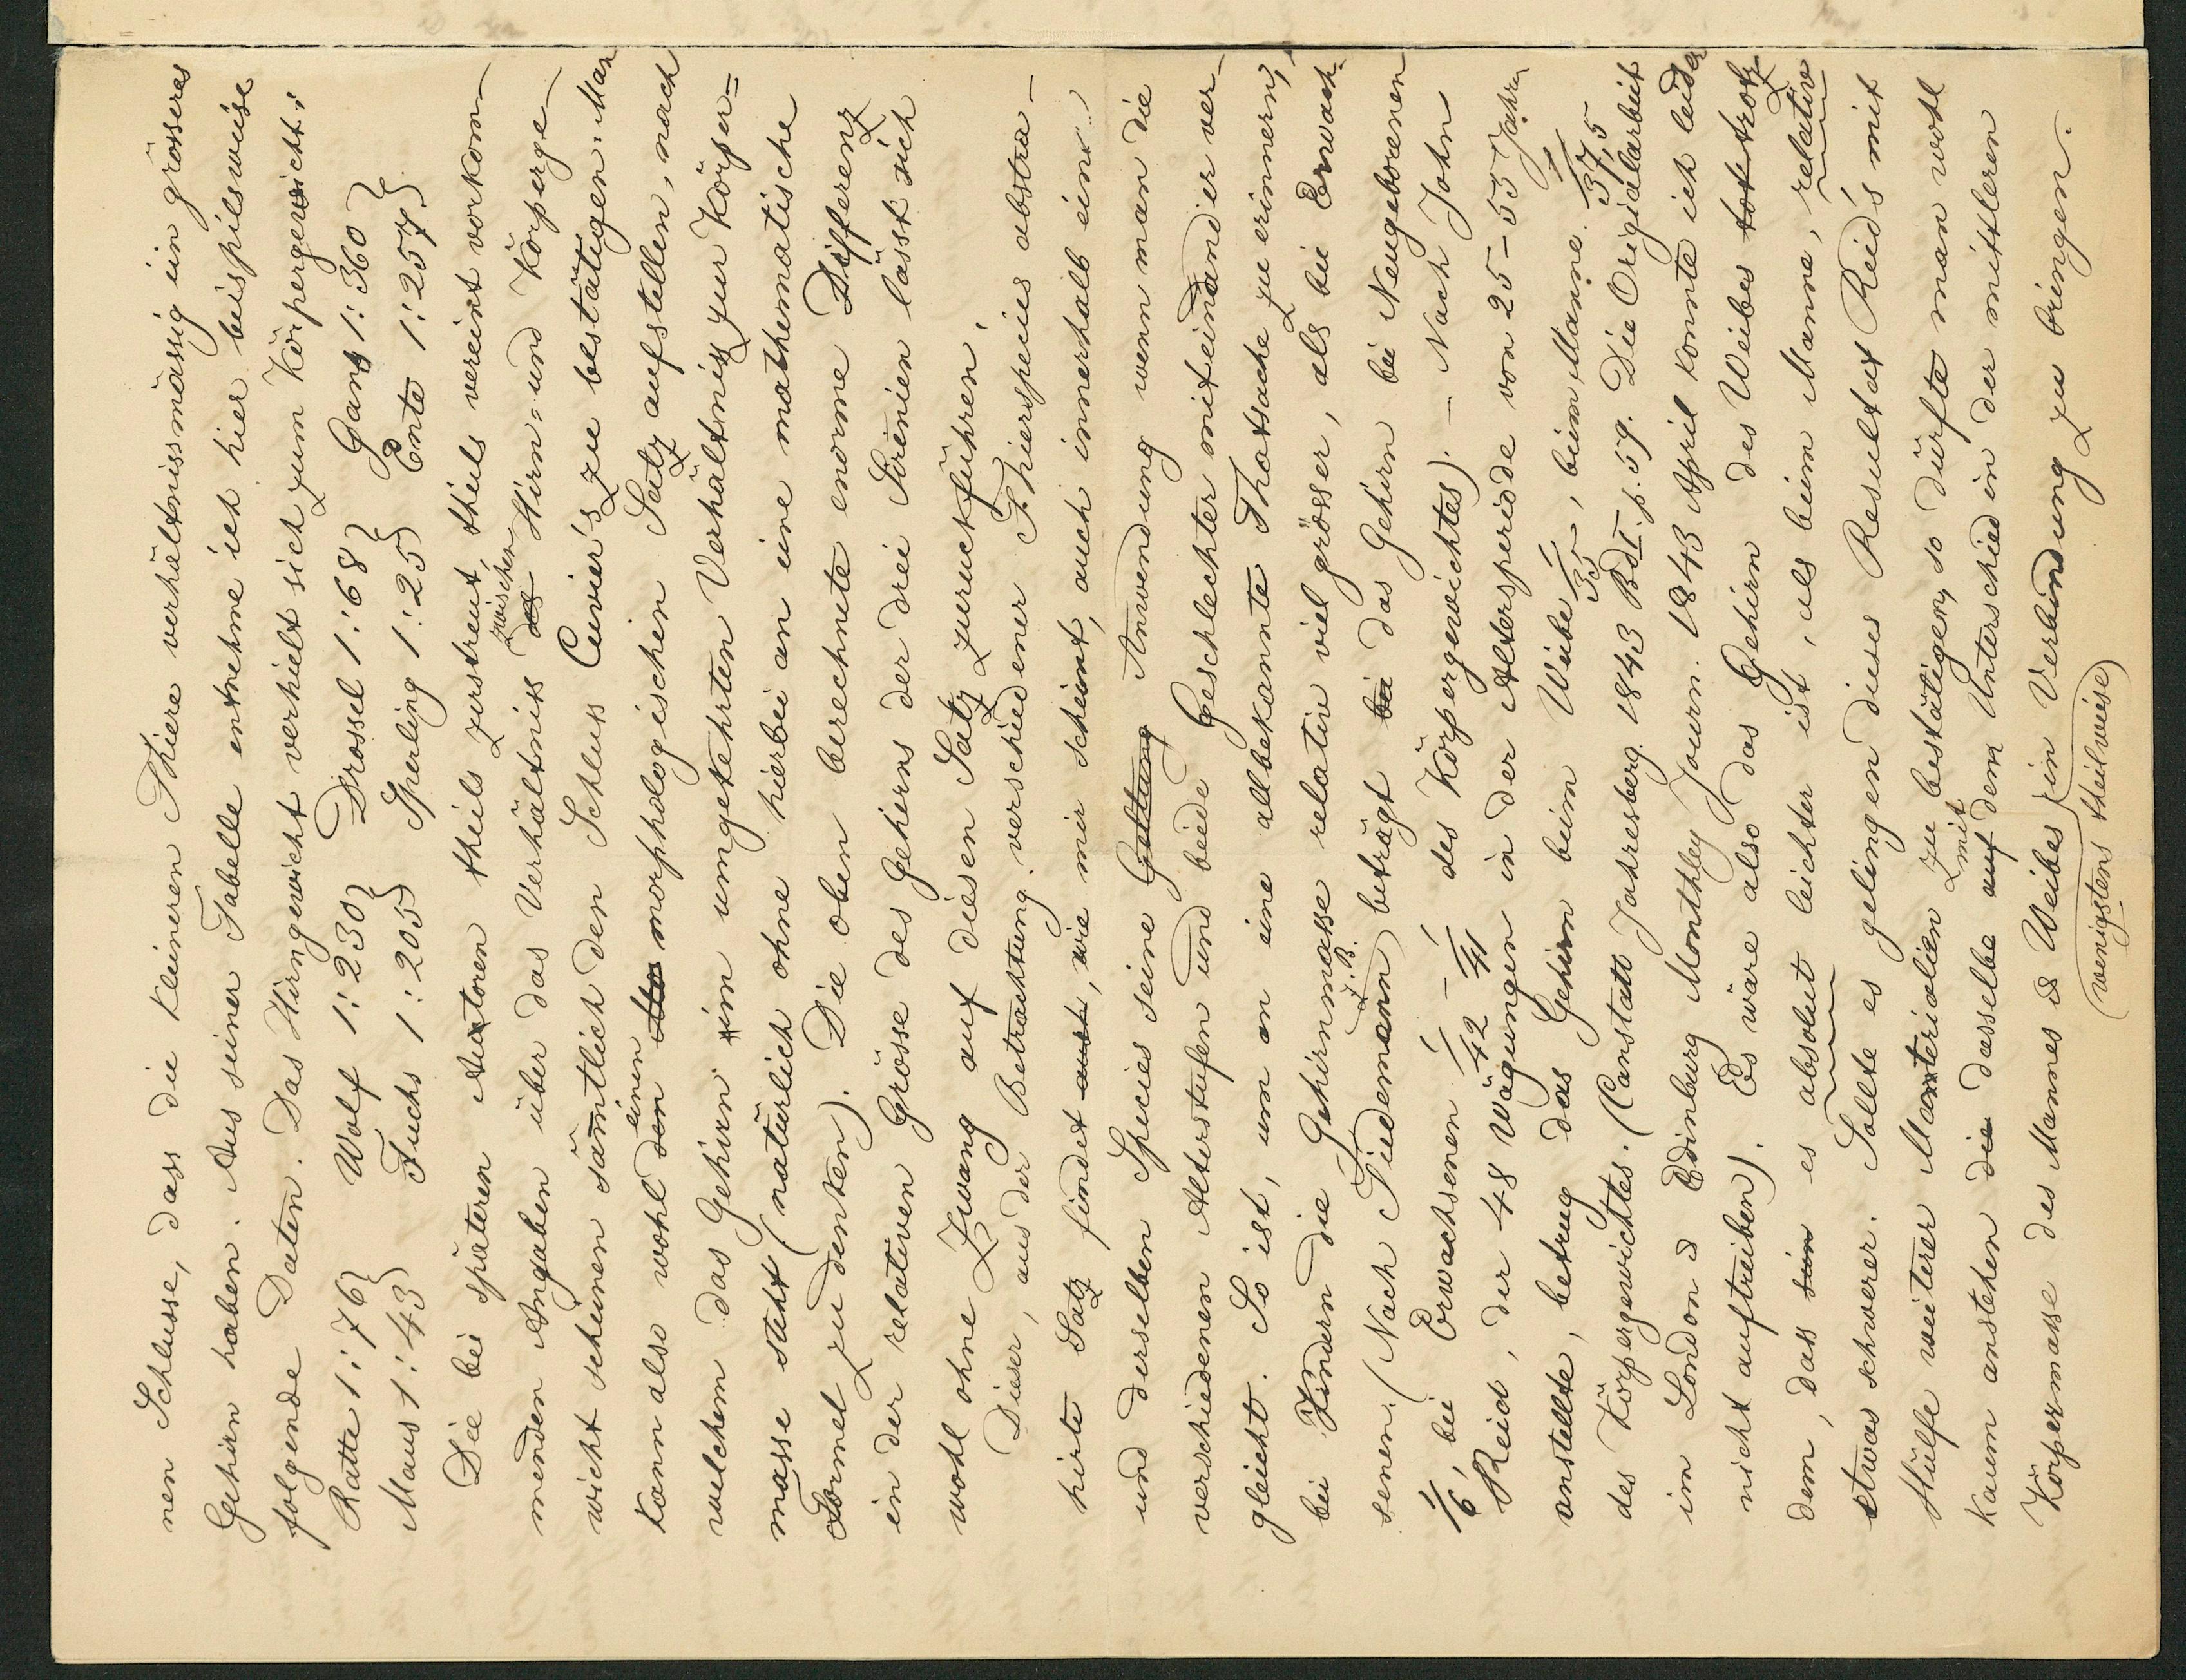 nen Schlusse, dass die kleineren Thiere verhältnissmässig ein grösseres
Gehirn haben. Aus seiner Tabelle entnehme ich hier beispielsweise
folgende Daten. Das Hirngewicht verhielt sich zum Körpergewicht:
Ratte 1:76} Wolf 1:230} Drossel 1:68} Gans 1:360}
Maus 1:43} Fuchs 1:205} Sperling 1:25} Ente 1:257}
Die bei späteren Autoren theils zerstreut, theils vereint vorkom-
menden Angaben über das Verhältniss des zwischen Hirn- und Körperge-
wicht scheinen sämtlich den Schluss Cuvier's zu bestätigen. Man
kann also wohl den einen morphologischen Satz aufstellen, nach
welchem das Gehirn im umgekehrten Verhältniss zur Körper=
masse steht (natürlich ohne hierbei an eine mathematische
Formel zu denken). Die oben berechnete enorme Differenz
in der relativen Grösse des Gehirns der drei Sirenien lässt sich
wohl ohne Zwang auf diesen Satz zurückführen.
Dieser, aus der Betrachtung verschiedener Thierspecies abstra-
hirte Satz findet auch, wie mir scheint, auch innerhalb einer
und derselben Species seine Geltung Anwendung wenn man die
verschiedenen Altersstufen und beide Geschlechter miteinander ver-
gleicht. So ist, um an eine allbekannte Thatsache zu erinnern,
bei Kindern die Gehirnmasse relativ viel grösser, als bei Erwach-
senen. (Nach Tiedemann z. B. beträgt bei das Gehirn bei Neugeborenen
1/6, bei Erwachsenen 1/42 - 1/41 des Körpergewichtes). - Nach John
Reid, der 48 Wägungen in der Altersperiode von 25-55 Jahren
anstellte, betrug das Gehirn beim Weibe 1/35, beim Manne 1/37,5
des Körpergewichtes. (Canstatt Jahresberg. 1843 Bd I. p. 59. Die Origialarbeit
im London & Edinburg Monthley Journ. 1843 April konnte ich leider
nicht auftreiben). Es wäre also das Gehirn des Weibes trotz
dem, dass sein es absolut leichter ist, als beim Manne, relativ
etwas schwerer. Sollte es gelingen dieses Resultat Reid's mit
Hülfe weiterer Materialien zu bestätigen, so dürfte man wohl
kaum anstehen die dasselbe auf mit dem Unterschied in der mittleren
Körpermasse des Mannes & Weibes in Verbindung zu bringen.
(wenigstens theilweise)